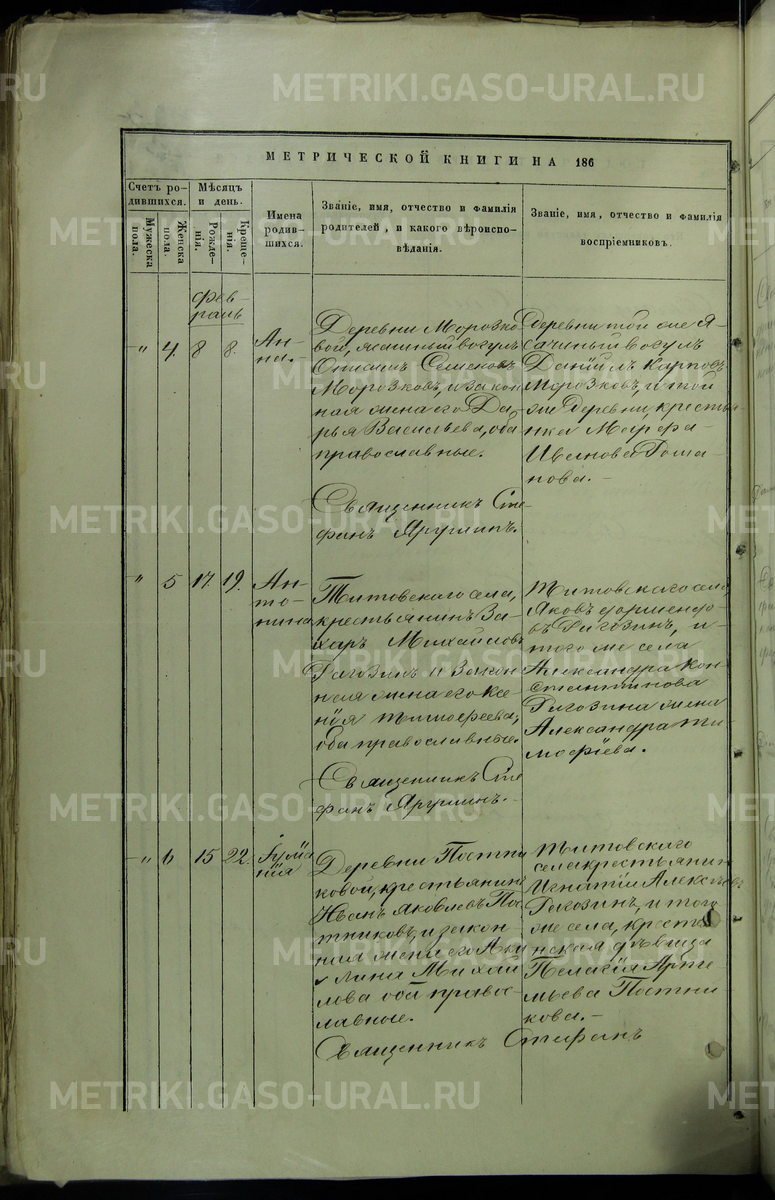 МЕТРИЧЕСКОЙ КНИГИ НА 186
Счетъ ро-
дившихся.
Мужеска
пола.
Женска
пола.
Мѣсяцъ
и день.
Рожде-
нія.
Креще-
нія.
Имена
родив-
шихся.
Званіе, имя, отчество и фамилія
родителей, и какого вѣроиспо-
вѣданія.
Званіе, имя, отчество и фамилія
воспріемниковъ.
Фев-
раль
" 4. 8 8.
Ан-
на.-
Деревни Морозко
вой, ясашный вогулъ
Семеновъ
Морозковъ, и закон
ная жена его Да-
рья Васильева, оба
православные.
Священникъ Сте
фанъ
деревни той же Я-
сачный вогулъ
Данїилъ Карповъ
Морозковъ, и той
же деревни, кресть
янка Марфа
Иванова
нова.-
" 5 17. 19.
Ан-
то-
нина
Титовскаго села,
крестьянинъ За-
харъ Михайловъ
Рагозинъ и закон
ная жена его Ксе-
нїя Тимофеева,
оба православные.
Священникъ Сте
фанъ
Титовскаго села
Яковъ
въ Рагозинъ, и
того же села
Александра Кон
стантинова
Рагозина жена
Александра Ти-
мофїева.
" 6 15 22.
Іулїа
нїя
Деревни Постни
ковой, крестьянинъ
Иванъ Яковлевъ По
тниковъ, и закон
ная жена его Аки
лина Михай
лова оба право-
славные.
Священникъ Стефанъ
Титовскаго
села крестьянинъ
Игнатїй Алексѣевъ
Рагозинъ, и того
же села, кресть
янская дѣвица
Пелагїя Арте-
мьева Постни
кова.-
METRIKI.GASO-URAL.RU